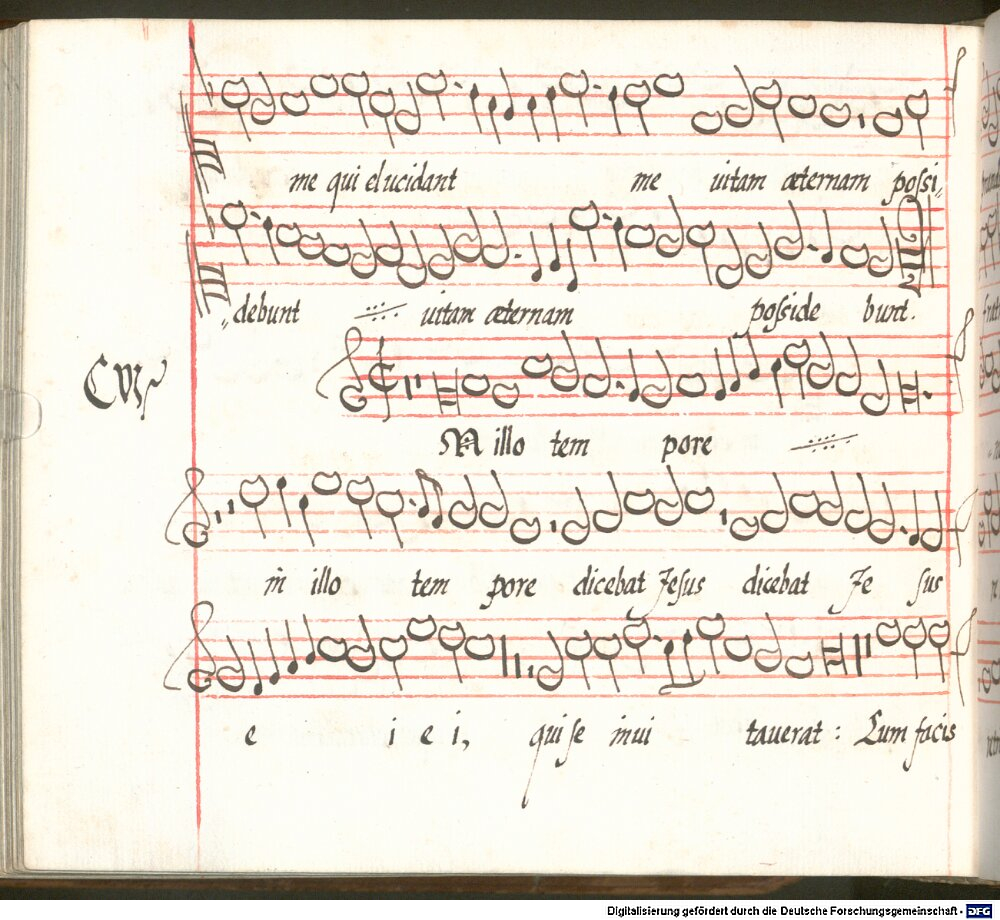 me qui elucidant me uitam æternam poſsi„
„debunt uitam æternam poſside bunt.
IN illo tem pore
in illo tem pore dicebat Jeſus dicebat Je ſus
e i e i, qui ſe inui tauerat : Cum facis
Digitalisierung gefördert durch die Deutsche Forschungsgemeinschaft - DFG